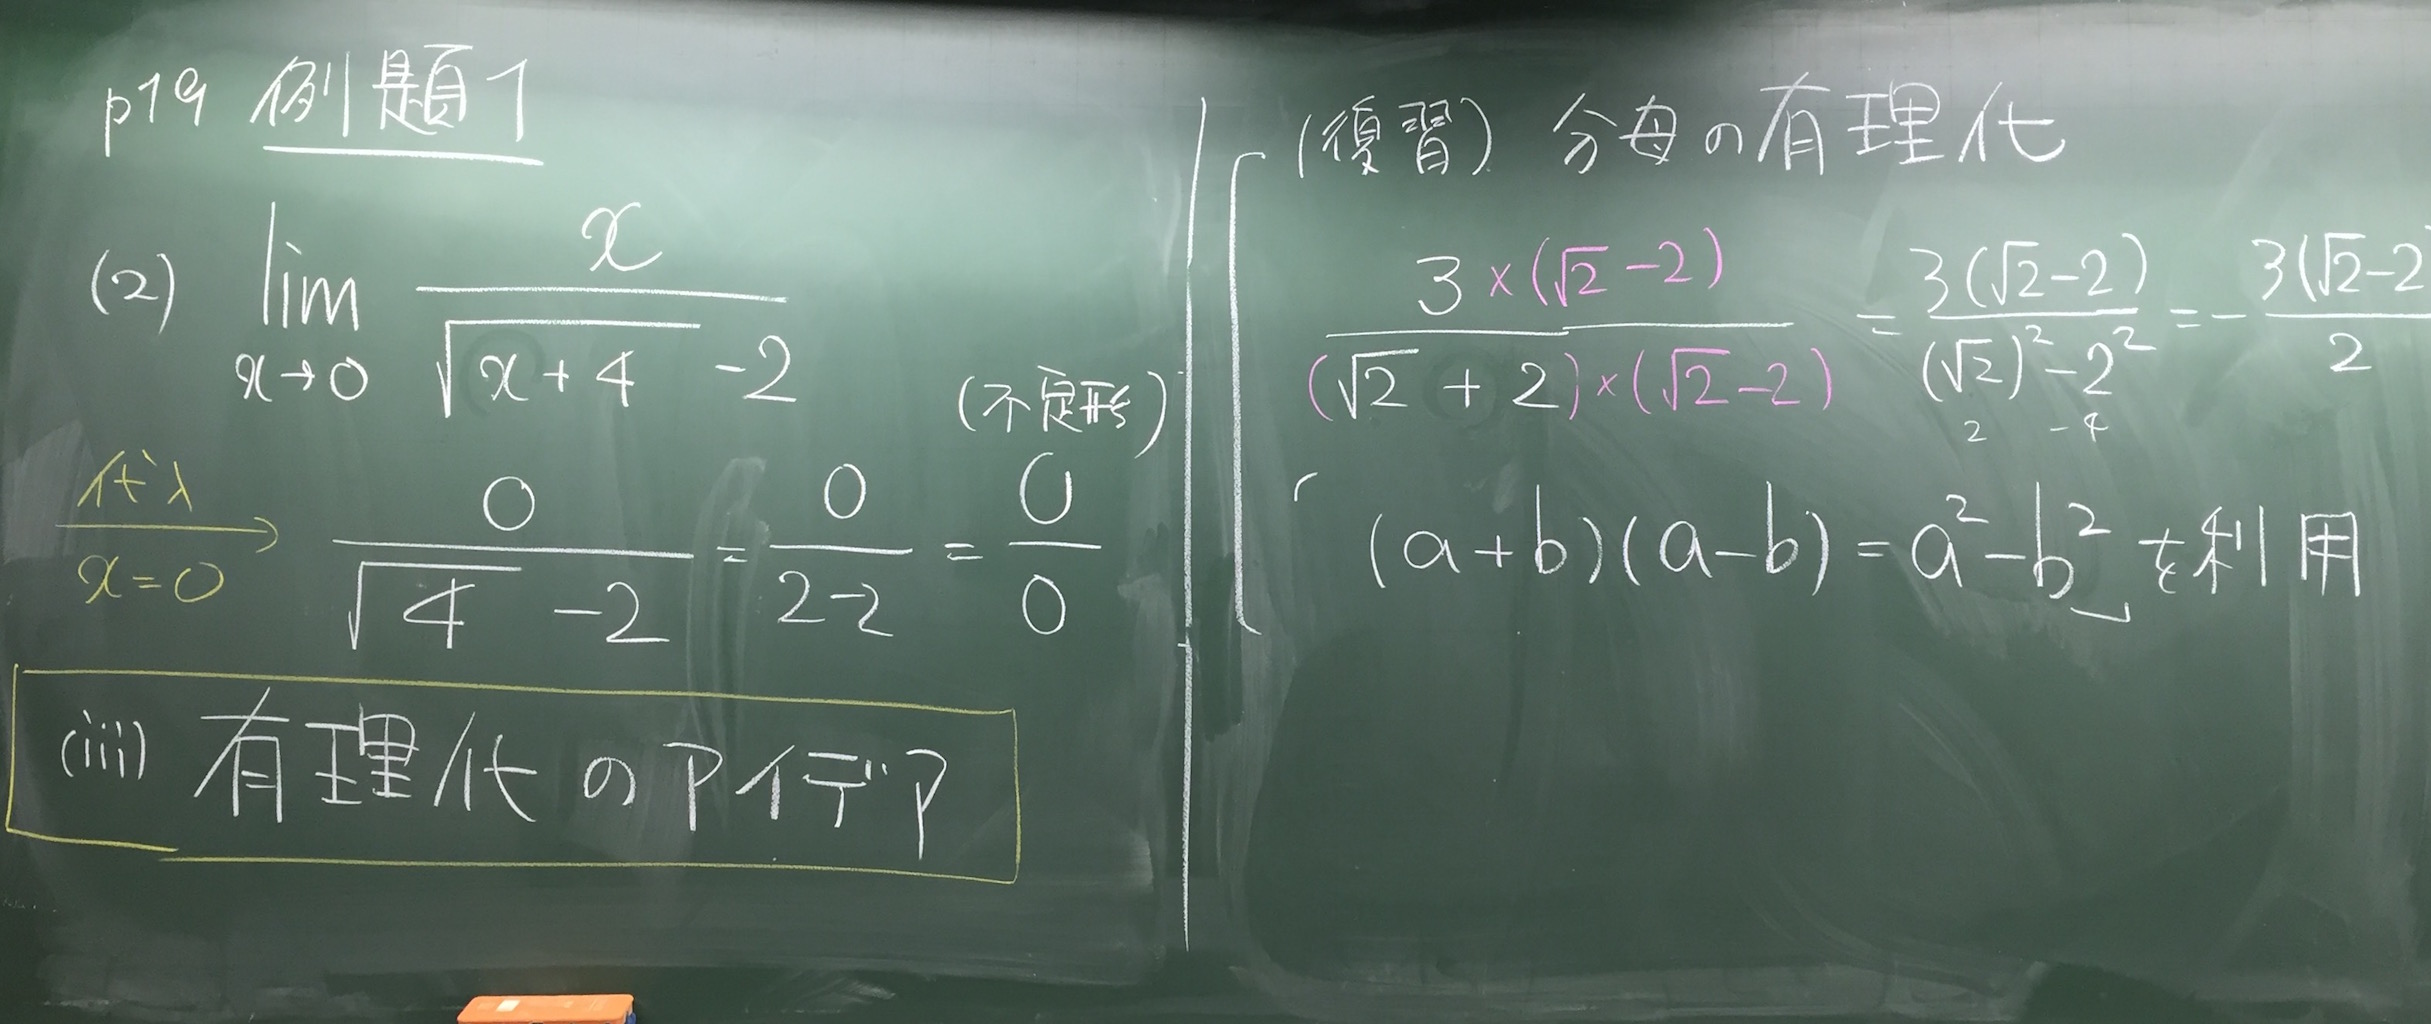 p19 例題1
(2) lim x→0 x / (√(x+4) -2)
(不定形)
代入 x=0 → 0 / (√4 -2) = 0 / (2-2) = 0 / 0
(iii) 有理化のアイデア
(復習) 分母の有理化
3×(√2-2) / (√2+2)×(√2-2) = 3(√2-2) / ((√2)²-2²) = - 3(√2-2 / 2
2 -4
「(a+b)(a-b)=a²-b²」を利用